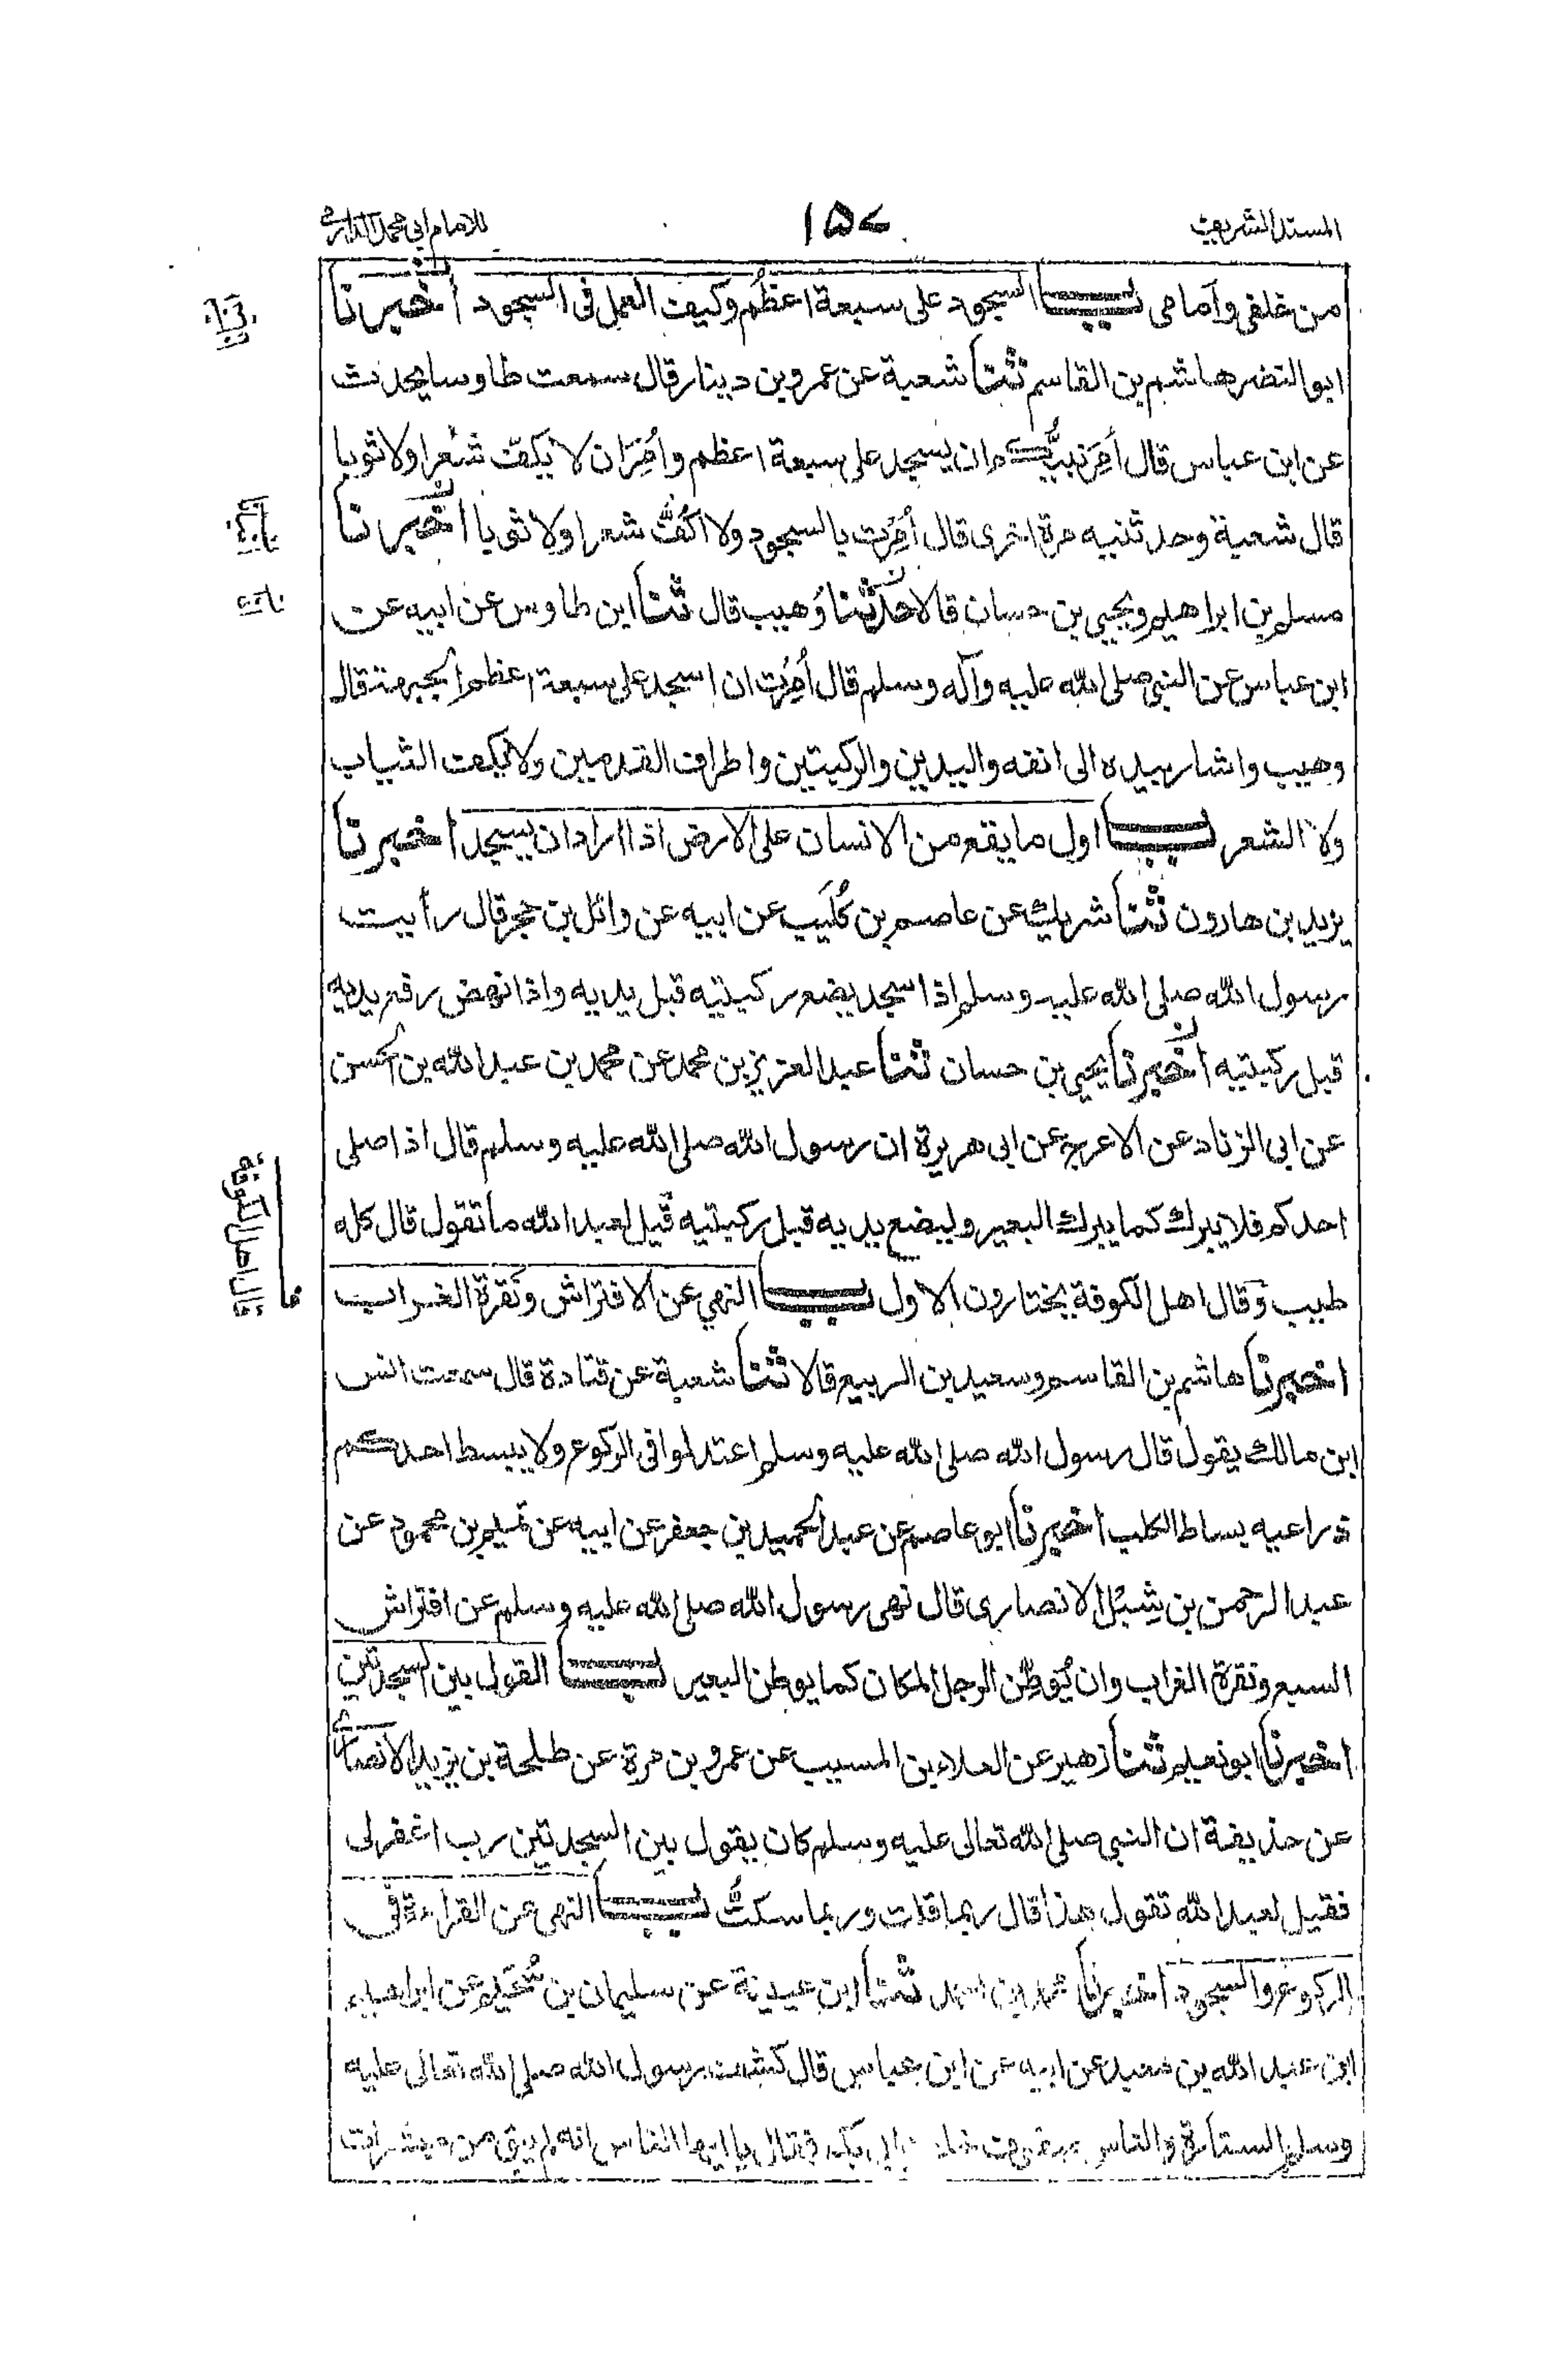 المسند الشريف
١٥٧
للامام ابی محمد الدارمی
من خلفی وأمامی باب السجود علی سبعة اعظُم وکیف العمل فی السجود اخبرنا
ابو النضر هاشم بن القاسم ثنا شعبة عن عمرو بن دینار قال سمعت طاوسا یحدث
عن ابن عباس قال أُمِرَ نبیُّکم ان یسجد علی سبعة اعظم وأُمِرَ ان لا یکفّ شعرا ولا ثوبا
قال شعبة وحدثنیه مرة اخری قال أُمِرْت بالسجود ولا اکُفُّ شعرا ولا ثوبا اخبرنا
مسلم بن ابراهیم ویحیی بن حسان قالا حدثنا وُهیب قال ثنا ابن طاوس عن ابیه عن
ابن عباس عن النبی صلی الله علیه وآله وسلم قال أُمِرْت ان اسجد علی سبعة اعظم الجبهة قال
وهیب واشار بیده الی انفه والیدین والرکبتین واطراف القدمین ولا نکف الثیاب
ولا الشعر باب اول ما یقع من الانسان علی الارض اذا اراد ان یسجد اخبرنا
یزید بن هارون ثنا شریك عن عاصم بن کُلَیب عن ابیه عن وائل بن حجر قال رأیت
رسول الله صلی الله علیه وسلم اذا سجد یضع رکبتیه قبل یدیه واذا نهض رفع یدیه
قبل رکبتیه اخبرنا یحیی بن حسان ثنا عبد العزیز بن محمد عن محمد بن عبد الله بن الحسن
عن ابی الزناد عن الاعرج عن ابی هریرة ان رسول الله صلی الله علیه وسلم قال اذا صلی
احدکم فلا یبرك کما یبرك البعیر ولیضع یدیه قبل رکبتیه قیل لعبد الله ما تقول قال کله
طیب وقال اهل الکوفة یختارون الاول باب النهی عن الافتراش ونَقرة الغراب
اخبرنا هاشم بن القاسم وسعید بن الربیع قالا ثنا شعبة عن قتادة قال سمعت انس
ابن مالك یقول قال رسول الله صلی الله علیه وسلم اعتدلوا فی الرکوع ولا یبسط احدکم
ذراعیه بساط الکلب اخبرنا ابو عاصم عن عبد الحمید بن جعفر عن ابیه عن تمیم بن محمود عن
عبد الرحمن بن شِبْل الانصاری قال نهی رسول الله صلی الله علیه وسلم عن افتراش
السبع ونقرة الغراب وان یُوطِن الرجل المکان کما یوطن البعیر باب القول بین السجدتین
اخبرنا ابو نعیم ثنا زهیر عن العلاء بن المسیب عن عمرو بن مرة عن طلحة بن یزید الانصاری
عن حذیفة ان النبی صلی الله تعالی علیه وسلم کان یقول بین السجدتین رب اغفر لی
فقیل لعبد الله تقول هذا قال ربما قلت وربما سکتُّ باب النهی عن القراءة فی
الرکوع والسجود اخبرنا محمد بن احمد ثنا ابن عیینة عن سلیمان بن سُحَیم عن ابراهیم
ابن عبد الله بن معبد عن ابیه عن ابن عباس قال کشف رسول الله صلی الله تعالی علیه
وسلم الستارة والناس صفوف خلف ابی بکر فقال یا ایها الناس انه لم یبق من مبشرات
قال اهل الکوفة